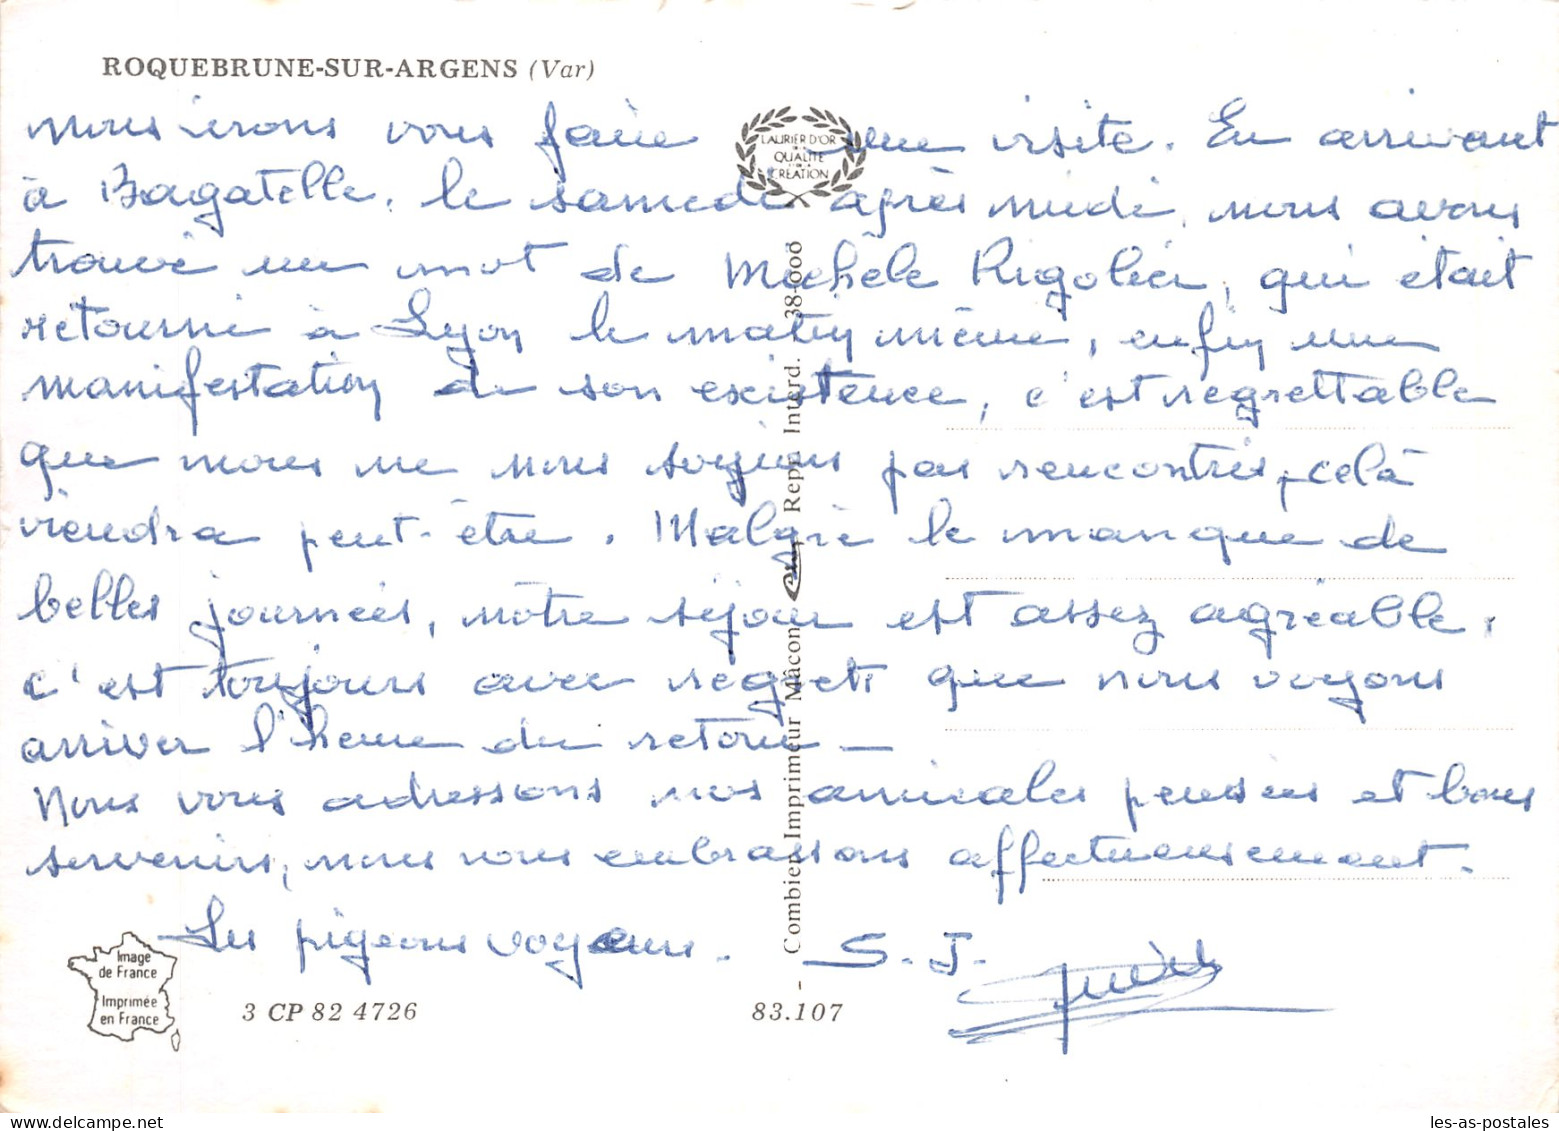 ROQUEBRUNE-SUR-ARGENS (Var)
nous irons vous faire une visite. En arrivant
à Bagatelle, le samedi après midi, nous avons
trouvé un mot de Michèle Rigolier, qui était
retourné à Lyon le matin même, enfin une
manifestation de son existence, c'est regrettable
que nous ne nous soyions pas rencontrés, celà
viendra peut-être. Malgré le manque de
belles journées, notre séjour est assez agréable,
c'est toujours avec regret que nous voyons
arriver l'heure du retour —
Nous vous adressons nos amicales pensées et bons
souvenirs, nous vous embrassons affectueusement.
Les pigeons voyageurs. S. J.
LAURIER D'OR
DE LA
QUALITÉ
DE LA
CRÉATION
- Combier Imprimeur Mâcon Repr. Interd. 38.000
Image
de France
Imprimée
en France
3 CP 82 4726
83.107
les-as-postales